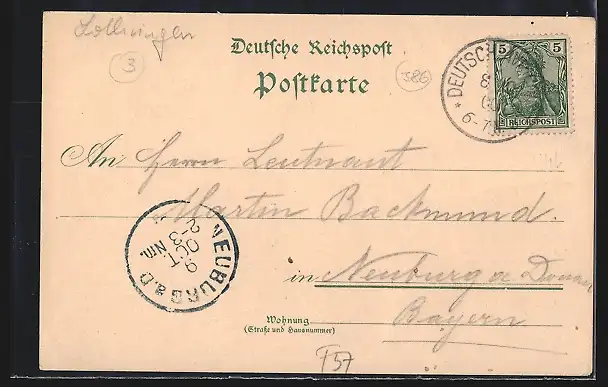 Lothringen
3
Deutsche Reichspost
Postkarte
386
5 5
REICHSPOST
* DEUTSCH
6-7
An Herrn Leutnant
Martin Backmund
in Neuburg a Donau
Bayern
NEUBURG a.D.
9. OCT.
2-3 Nm.
Wohnung
(Straße und Hausnummer)
F57